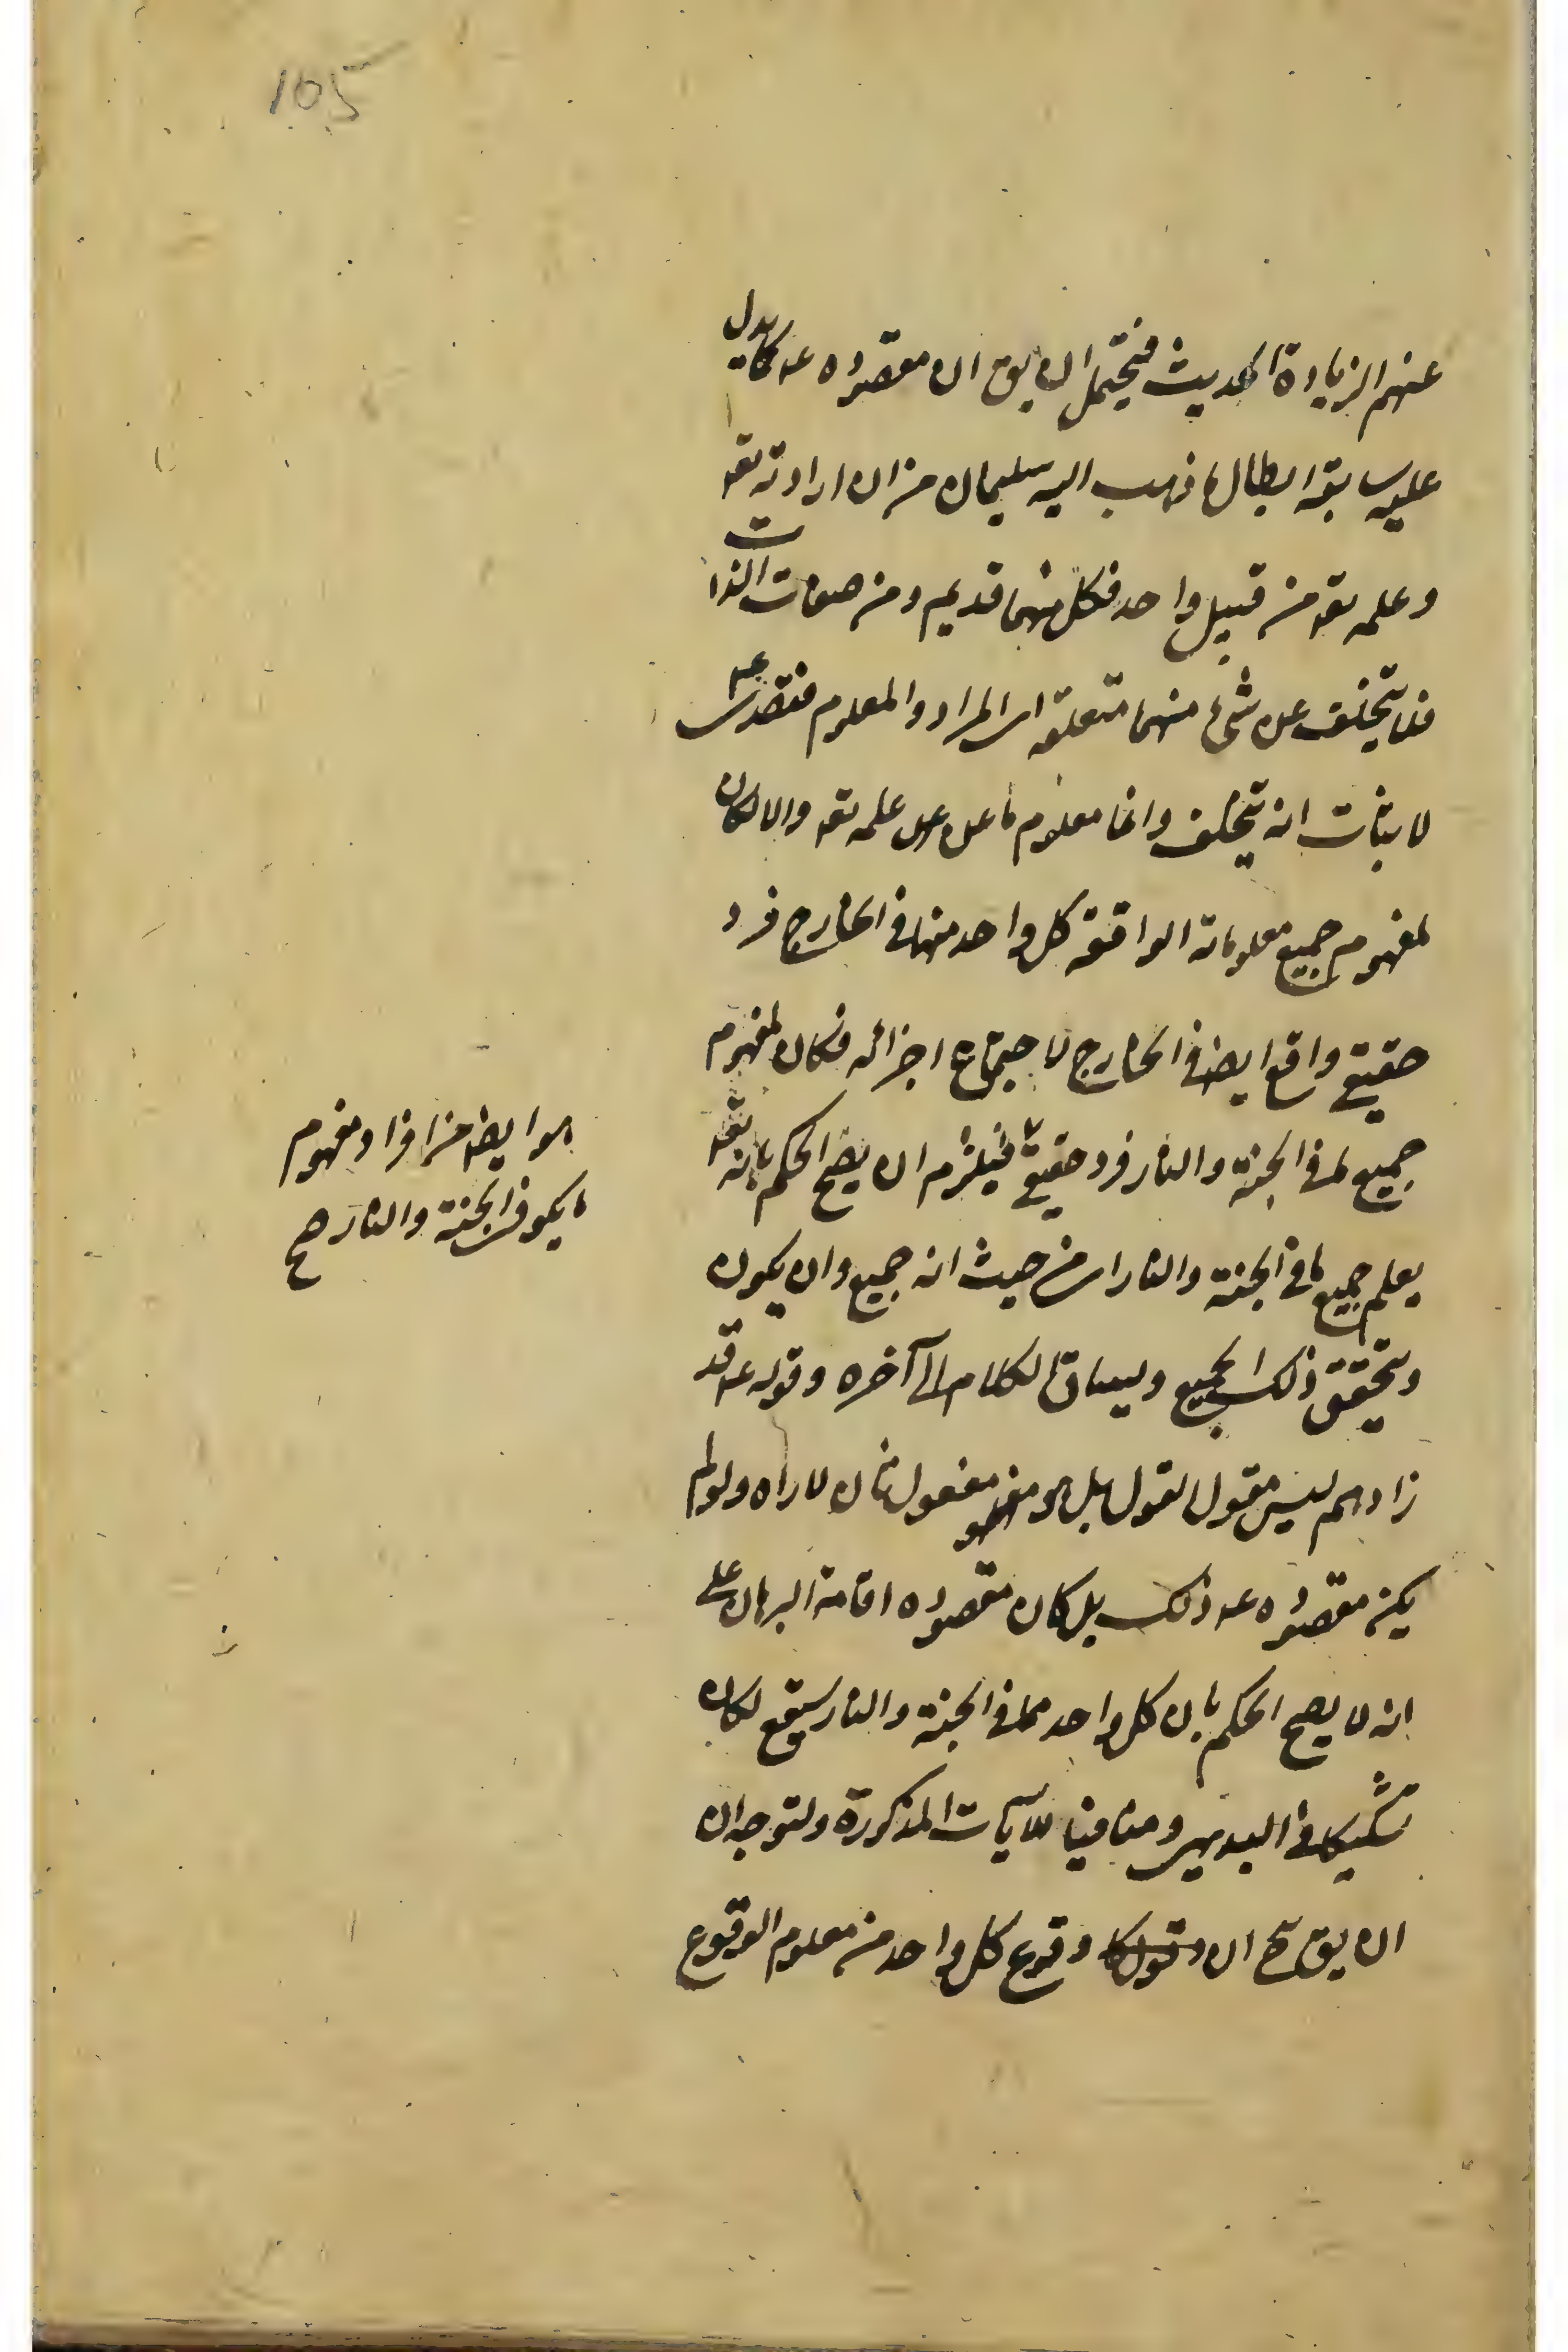 105
عنهم الزيادة الحديث فيحتمل ان يق ان مقصوده عه كما يدل
عليه سابقه ابطال ما ذهب اليه سليمان من ان ارادته تعه
وعلمه تعه من قبيل واحد فكل منهما قديم ومن صفات الذات
فلا يتخلف عن شئ منهما متعلقه اى المراد والمعلوم فقصد عه
لاثبات انه يتخلف معلوم ما عن علمه تعه والا لكان
لمفهوم جميع معلوماته الواقعة كل واحد منها فى الخارج فرد
حقيقى واقع ايضا فى الخارج لاجتماع اجزائه فكان لمفهوم
جميع ما فى الجنة والنار فرد حقيقى فيلزم ان يصح الحكم بانه تعه
هو ايضا من افراد مفهوم
ما يكون فى الجنة والنار صح
يعلم جميع ما فى الجنة والنار من حيث انه جميع وان يكون
ويتحقق ذلك الجميع ويساق الكلام الى آخره وقوله عه قد
زادهم ليس مقول القول بل هو مفعول ثان لاراه ولو لم
يكن مقصوده عه ذلك بل كان مقصوده اقامة البرهان على
انه لا يصح الحكم بان كل واحد مما فى الجنة والنار سيقع لكان
تشكيكا فى البديهى ومنافيا للآيات المذكورة ولتوجه ان
ان يق ح ان وقوع كل واحد من معلوم الوقوع